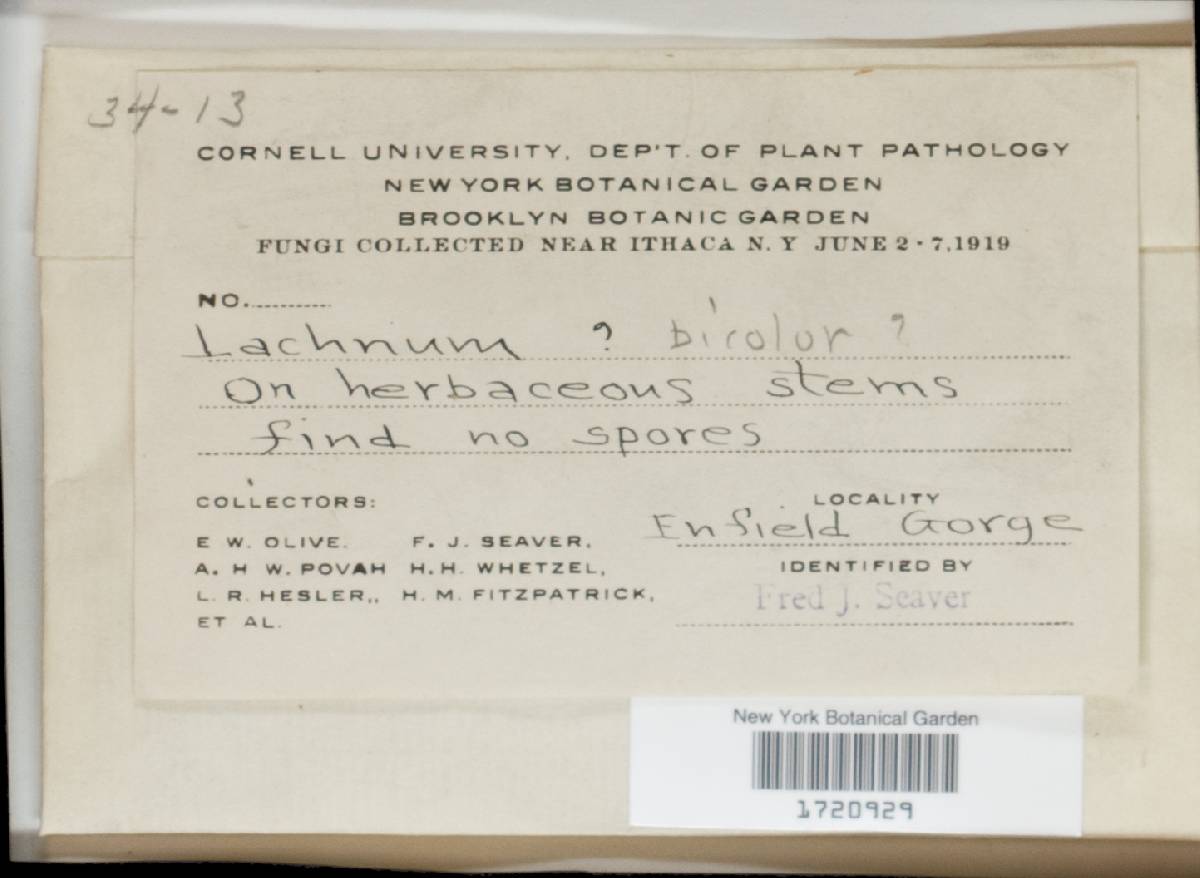 34-13
CORNELL UNIVERSITY, DEP'T. OF PLANT PATHOLOGY
NEW YORK BOTANICAL GARDEN
BROOKLYN BOTANIC GARDEN
FUNGI COLLECTED NEAR ITHACA N. Y JUNE 2 - 7, 1919
NO.
Lachnum ? bicolor ?
On herbaceous stems
find no spores
COLLECTORS:
E W. OLIVE. F. J. SEAVER,
A. H W. POVAH H. H. WHETZEL,
L. R. HESLER,, H. M. FITZPATRICK,
ET AL.
LOCALITY
Enfield Gorge
IDENTIFIED BY
Fred J. Seaver
New York Botanical Garden
1720929